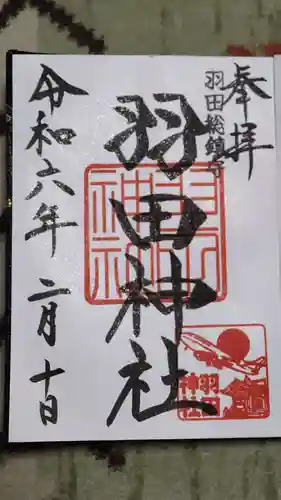 奉拝
羽田総鎮守
羽田神社
令和六年二月十日
羽田
神社
羽田
神社